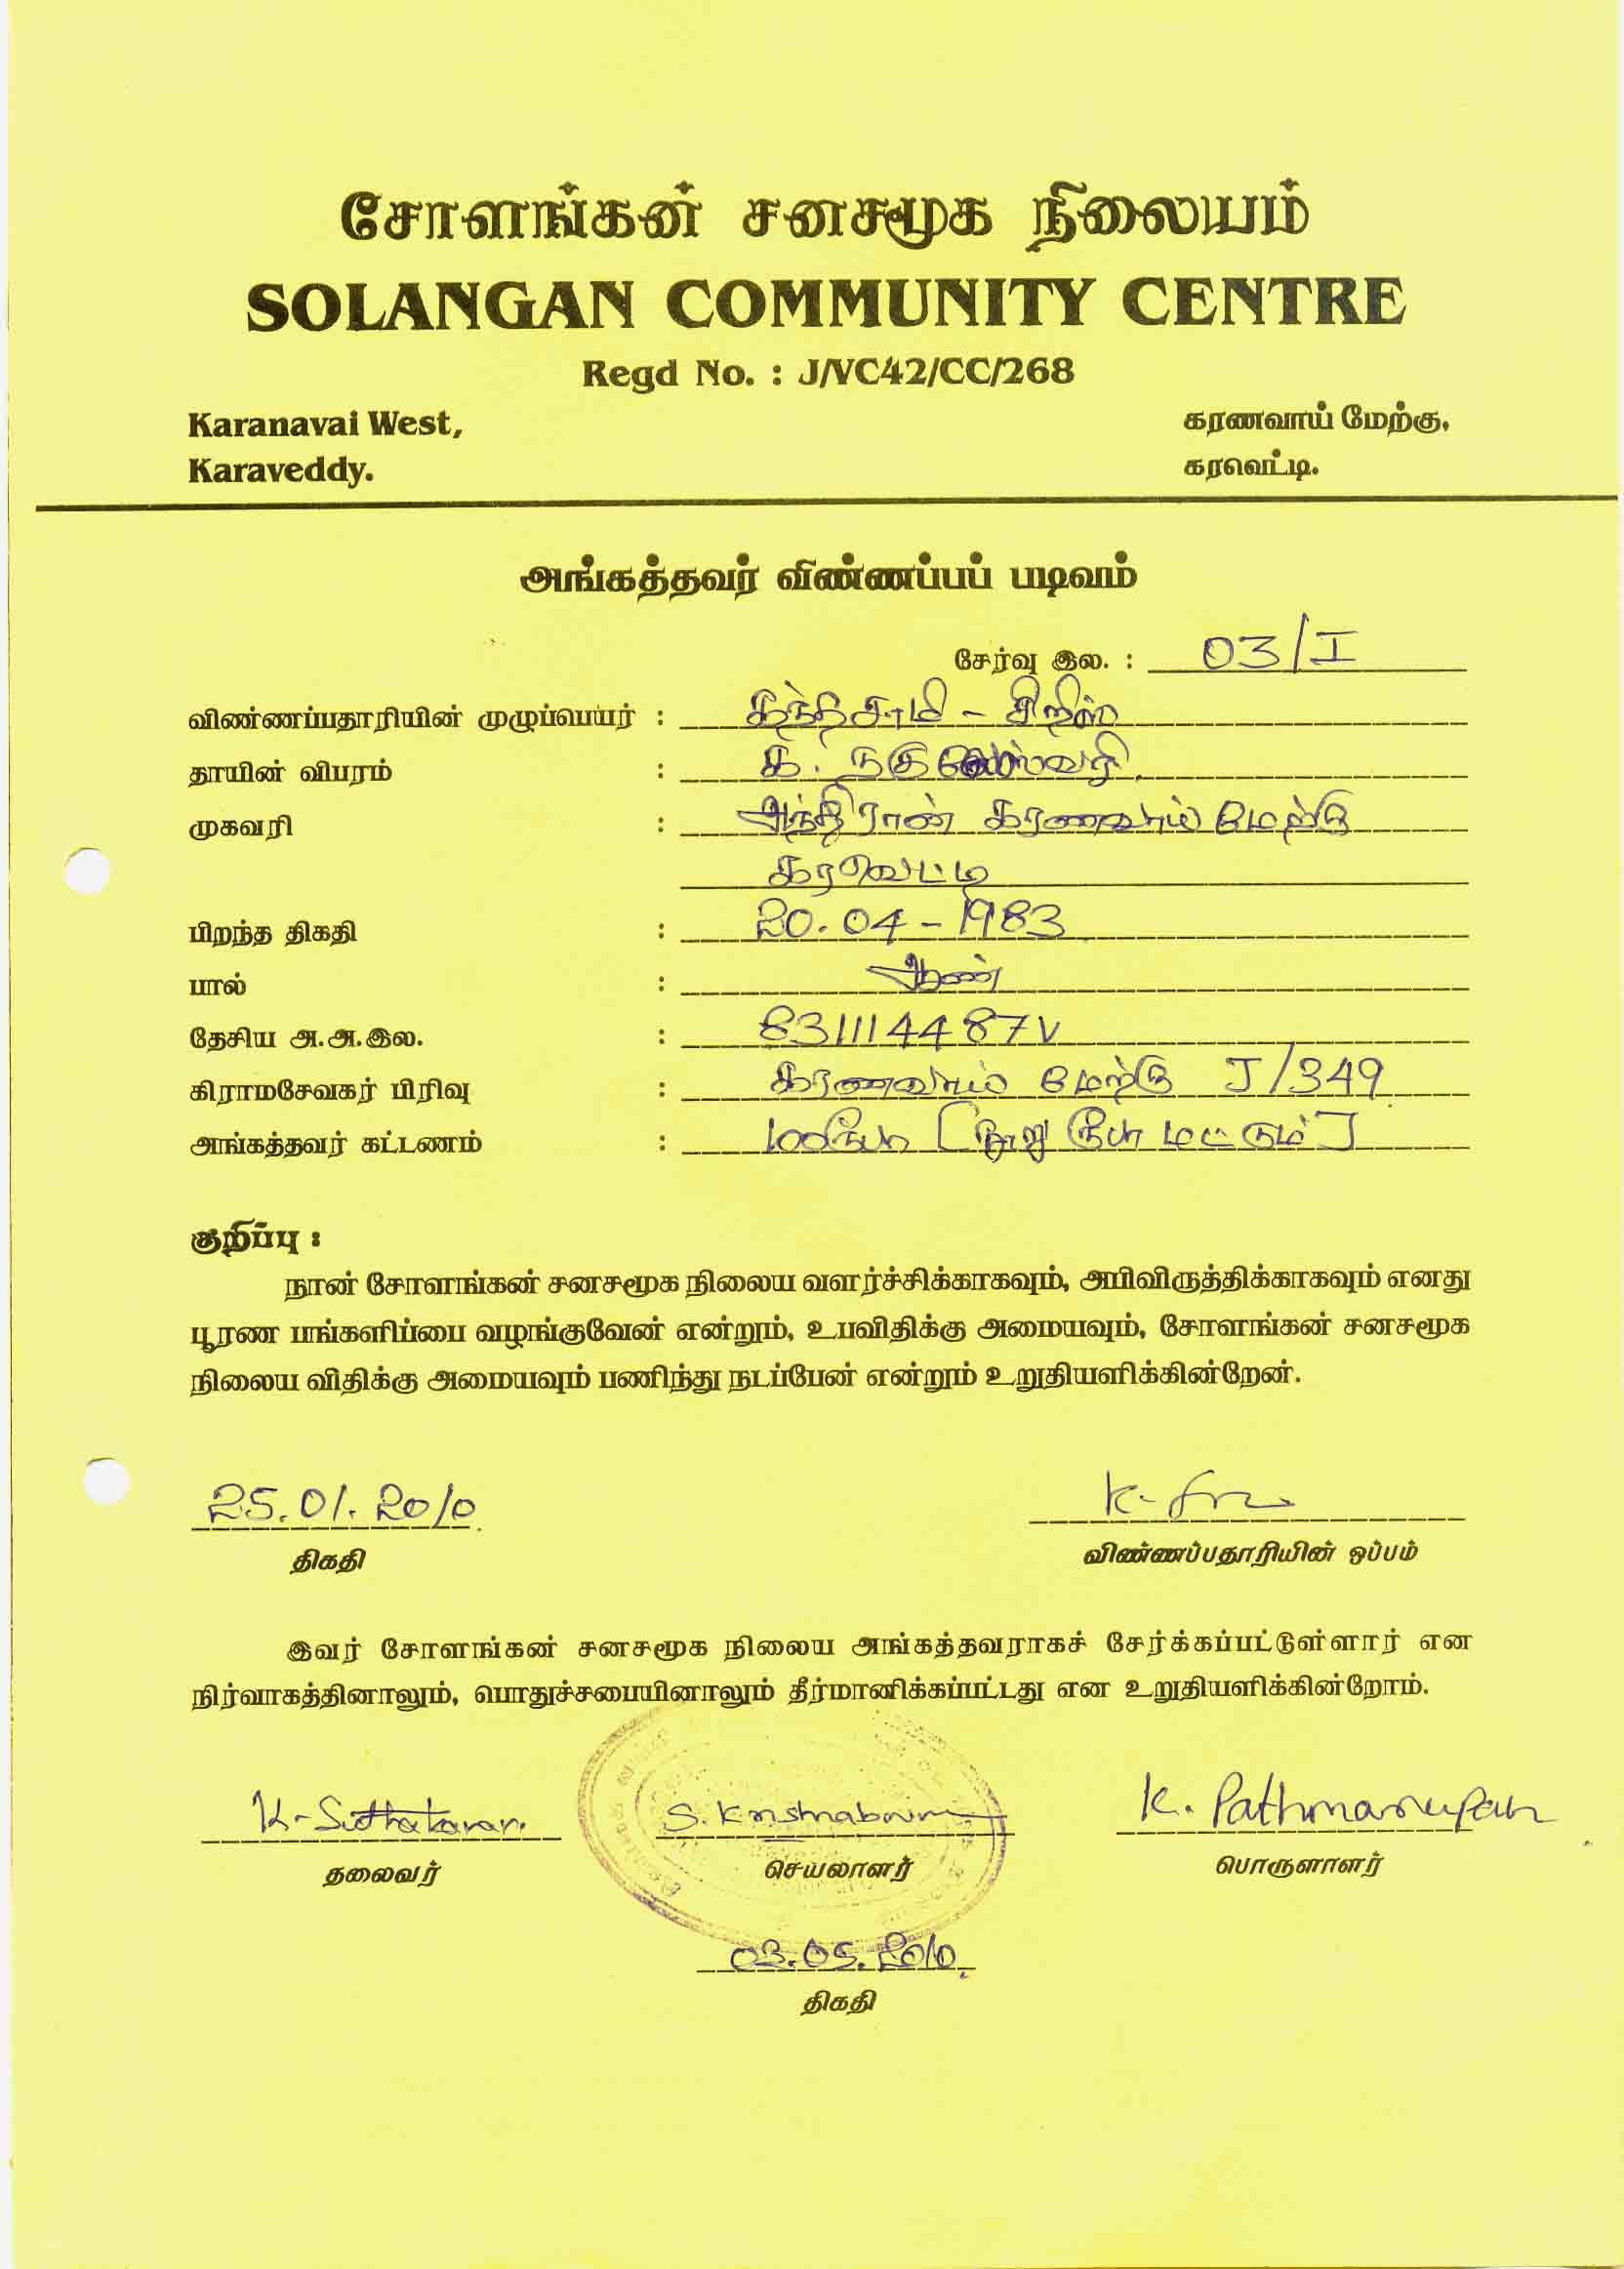 சோளங்கன் சனசமூக நிலையம்
SOLANGAN COMMUNITY CENTRE
Regd No. : J/VC42/CC/268
Karanavai West,
கரணவாய் மேற்கு,
Karaveddy.
கரவெட்டி.
அங்கத்தவர் விண்ணப்பப் படிவம்
சேர்வு இல. : 03/I
விண்ணப்பதாரியின் முழுப்பெயர் : கந்தசாமி - சிறிஸ்
தாயின் விபரம் : க.
முகவரி : அந்திராண் கரணவாய் மேற்கு
கரவெட்டி
பிறந்த திகதி : 20.04-1983
பால் : ஆண்
தேசிய அ.அ.இல. : 831114487V
கிராமசேவகர் பிரிவு : கரணவாய் மேற்கு J/349
அங்கத்தவர் கட்டணம் : 100ரூபா [நூறு ரூபா மட்டும்]
குறிப்பு :
நான் சோளங்கன் சனசமூக நிலைய வளர்ச்சிக்காகவும், அபிவிருத்திக்காகவும் எனது
பூரண பங்களிப்பை வழங்குவேன் என்றும், உபவிதிக்கு அமையவும், சோளங்கன் சனசமூக
நிலைய விதிக்கு அமையவும் பணிந்து நடப்பேன் என்றும் உறுதியளிக்கின்றேன்.
25.01.2010
K-
திகதி
விண்ணப்பதாரியின் ஒப்பம்
இவர் சோளங்கன் சனசமூக நிலைய அங்கத்தவராகச் சேர்க்கப்பட்டுள்ளார் என
நிர்வாகத்தினாலும், பொதுச்சபையினாலும் தீர்மானிக்கப்பட்டது என உறுதியளிக்கின்றோம்.
K-Suthakaran. S. K. Pathmarupan
தலைவர் செயலாளர் பொருளாளர்
03.05.2010.
திகதி